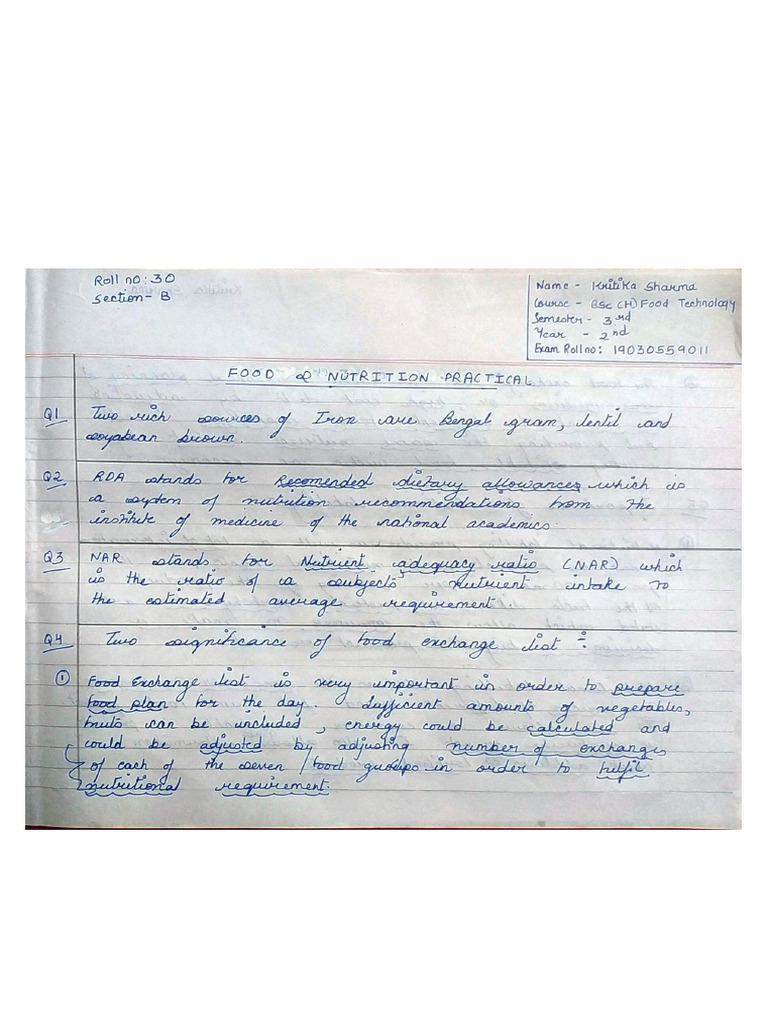 Roll no: 30
Section- B
Name - Kritika Sharma
Course - BSc (H) Food Technology
Semester - 3rd
Year - 2nd
Exam Roll no: 19030559011
FOOD & NUTRITION PRACTICAL
Q1 Two rich sources of Iron are Bengal gram, lentil and
soyabean brown.
Q2 RDA stands for Recomended dietary allowances which is
a system of nutrition recommendations from the
institute of medicine of the national academics.
Q3 NAR stands for Nutrient adequacy ratio (NAR) which
is the ratio of a subjects' nutrient intake to
the estimated average requirement.
Q4 Two significance of food exchange list :-
① Food Exchange list is very important in order to prepare
food plan for the day. Sufficient amounts of vegetables,
fruits can be included, energy could be calculated and
could be adjusted by adjusting number of exchanges
of each of the seven food groups in order to fulfil
nutritional requirement.